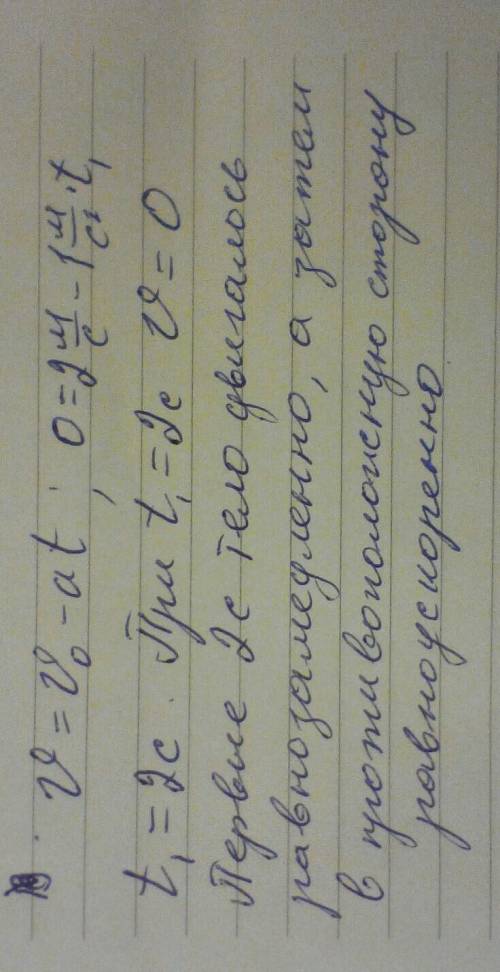 v = v₀ - at ; 0 = 2 м/с - 1 м/с² · t₁
t₁ = 2с. При t₁ = 2с v = 0
Первые 2с тело двигалось
равнозамедленно, а затем
в противоположную сторону
равноускоренно